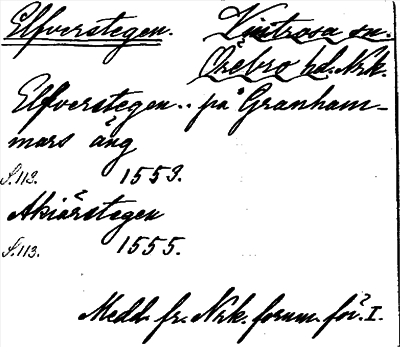 Elfverstegen. Vintrosa sn.
Örebro hd. Nrk.
Elfverstegen.. på Granham-
mars äng
S. 112. 1553.
Akiärstegen
S. 113. 1555.
Medd. fr. Nrk. fornm. för. I.